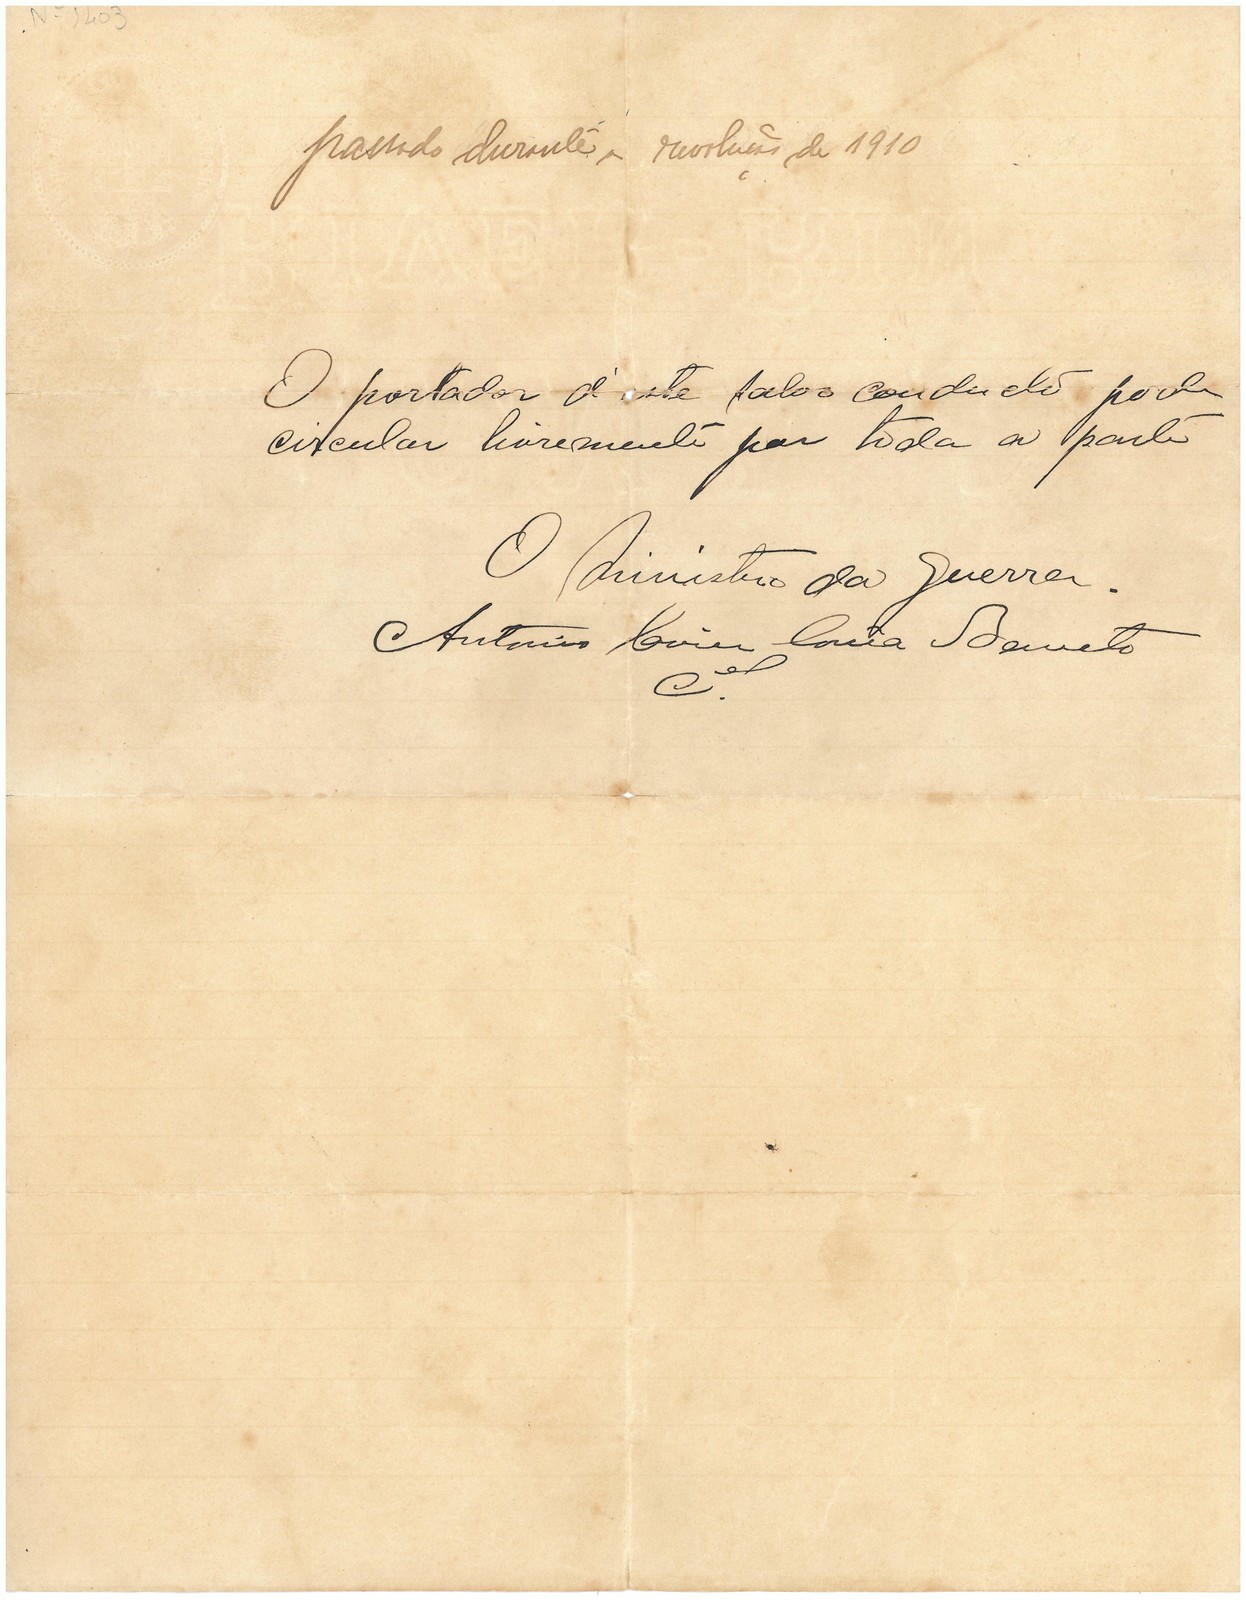 Nº 1403
passado durante a revolução de 1910
O portador d'este salvo conducto pode
circular livremente por toda a parte
O Ministro da Guerra.
Antonio Xavier Correia Barreto
C.el